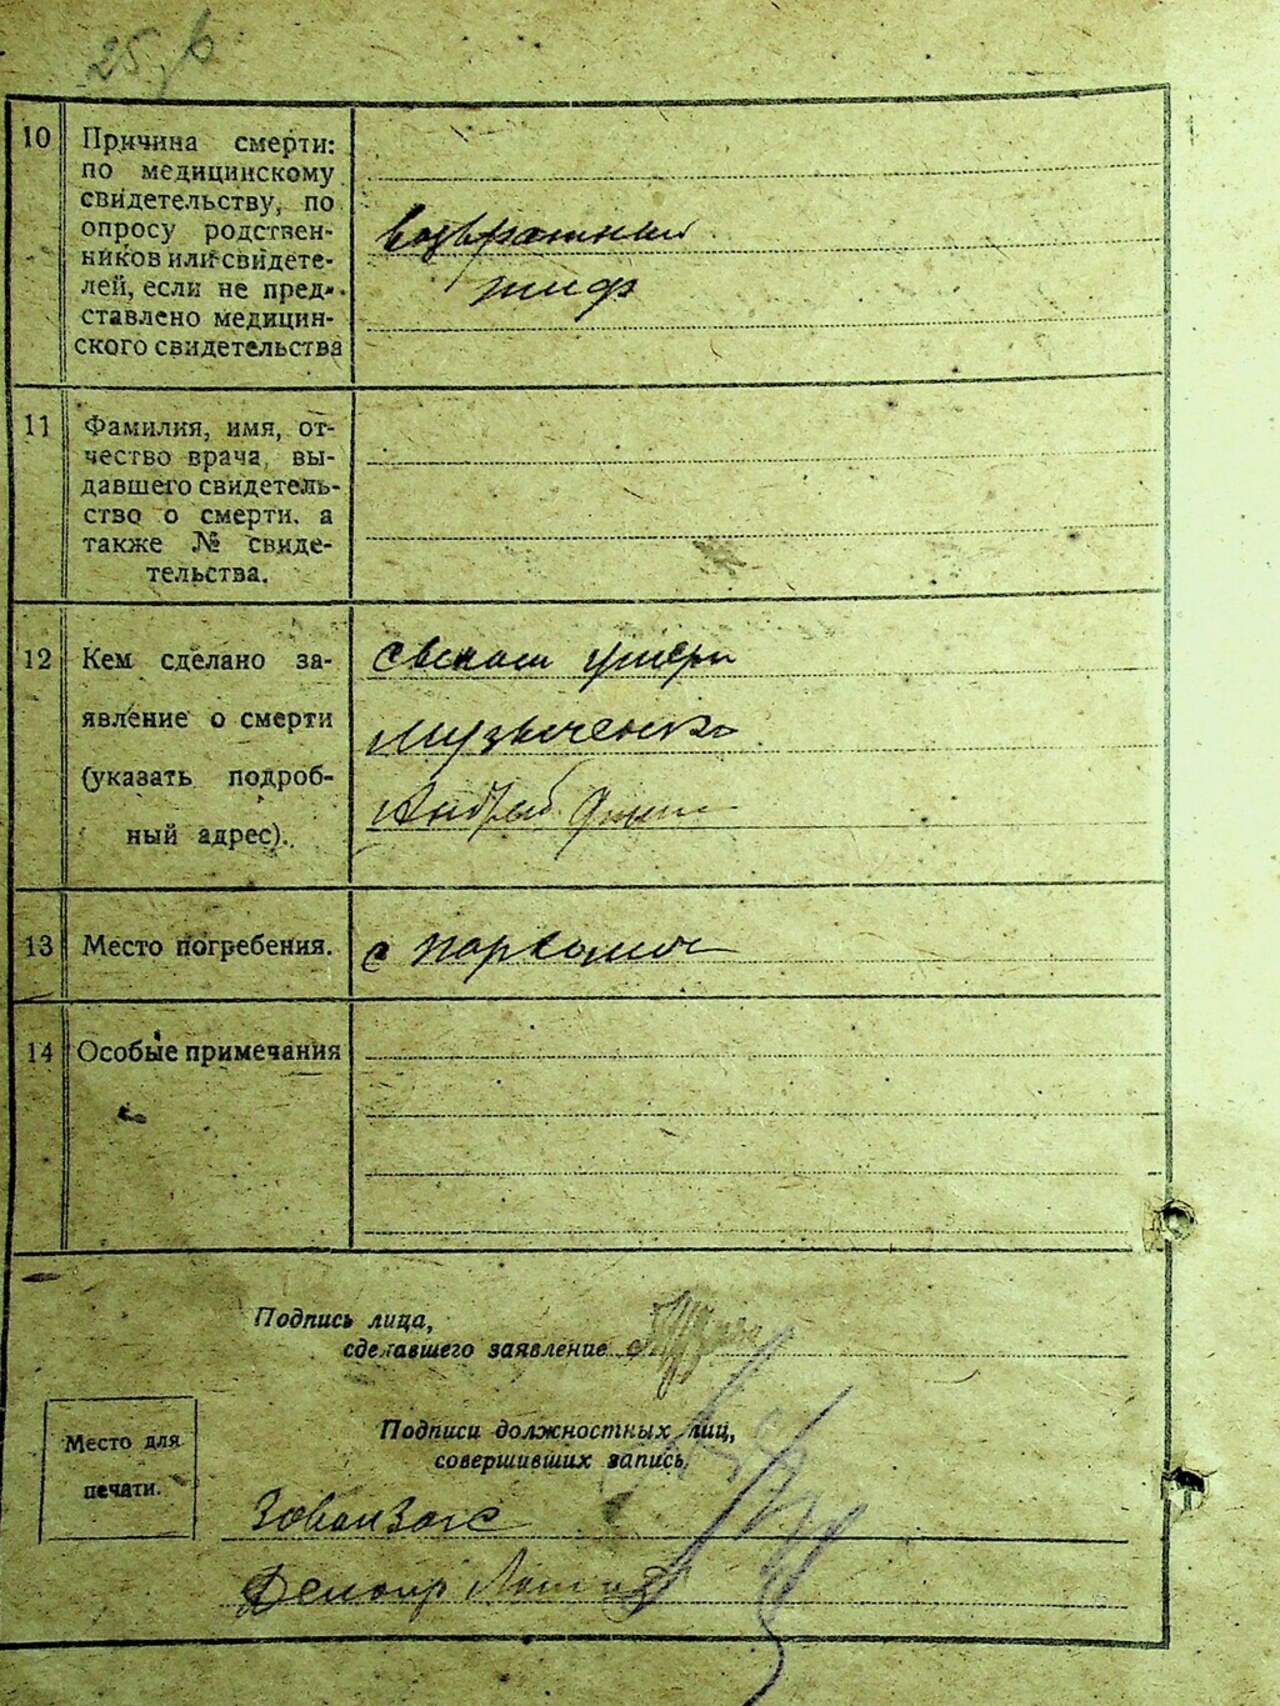 10 Причина смерти:
по медицинскому
свидетельству, по
опросу родствен-
ников или свидете-
лей, если не пред-
ставлено медицин-
ского свидетельства
возвратный
тиф
11 Фамилия, имя, от-
чество врача, вы-
давшего свидетель-
ство о смерти, а
также № свиде-
тельства.
12 Кем сделано за-
явление о смерти
(указать подроб-
ный адрес).
сыном умери
Музыченко
Андрей
13 Место погребения.
с
14 Особые примечания
Подпись лица,
сделавшего заявление
Место для
печати.
Подписи должностных лиц,
совершивших запись